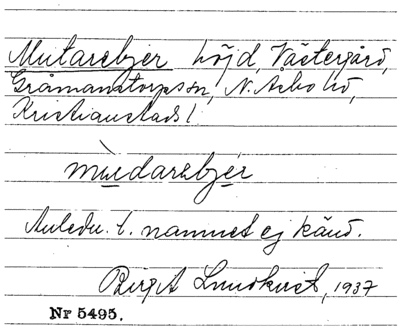 Mutarebjer höjd, Västergård,
Gråmanstorps sn, N. Åsbo hd,
Kristianstads l.
mùdarebjer
Anledn. t. namnet ej känd.
Birgit Lundkvist, 1937
Nr 5495.